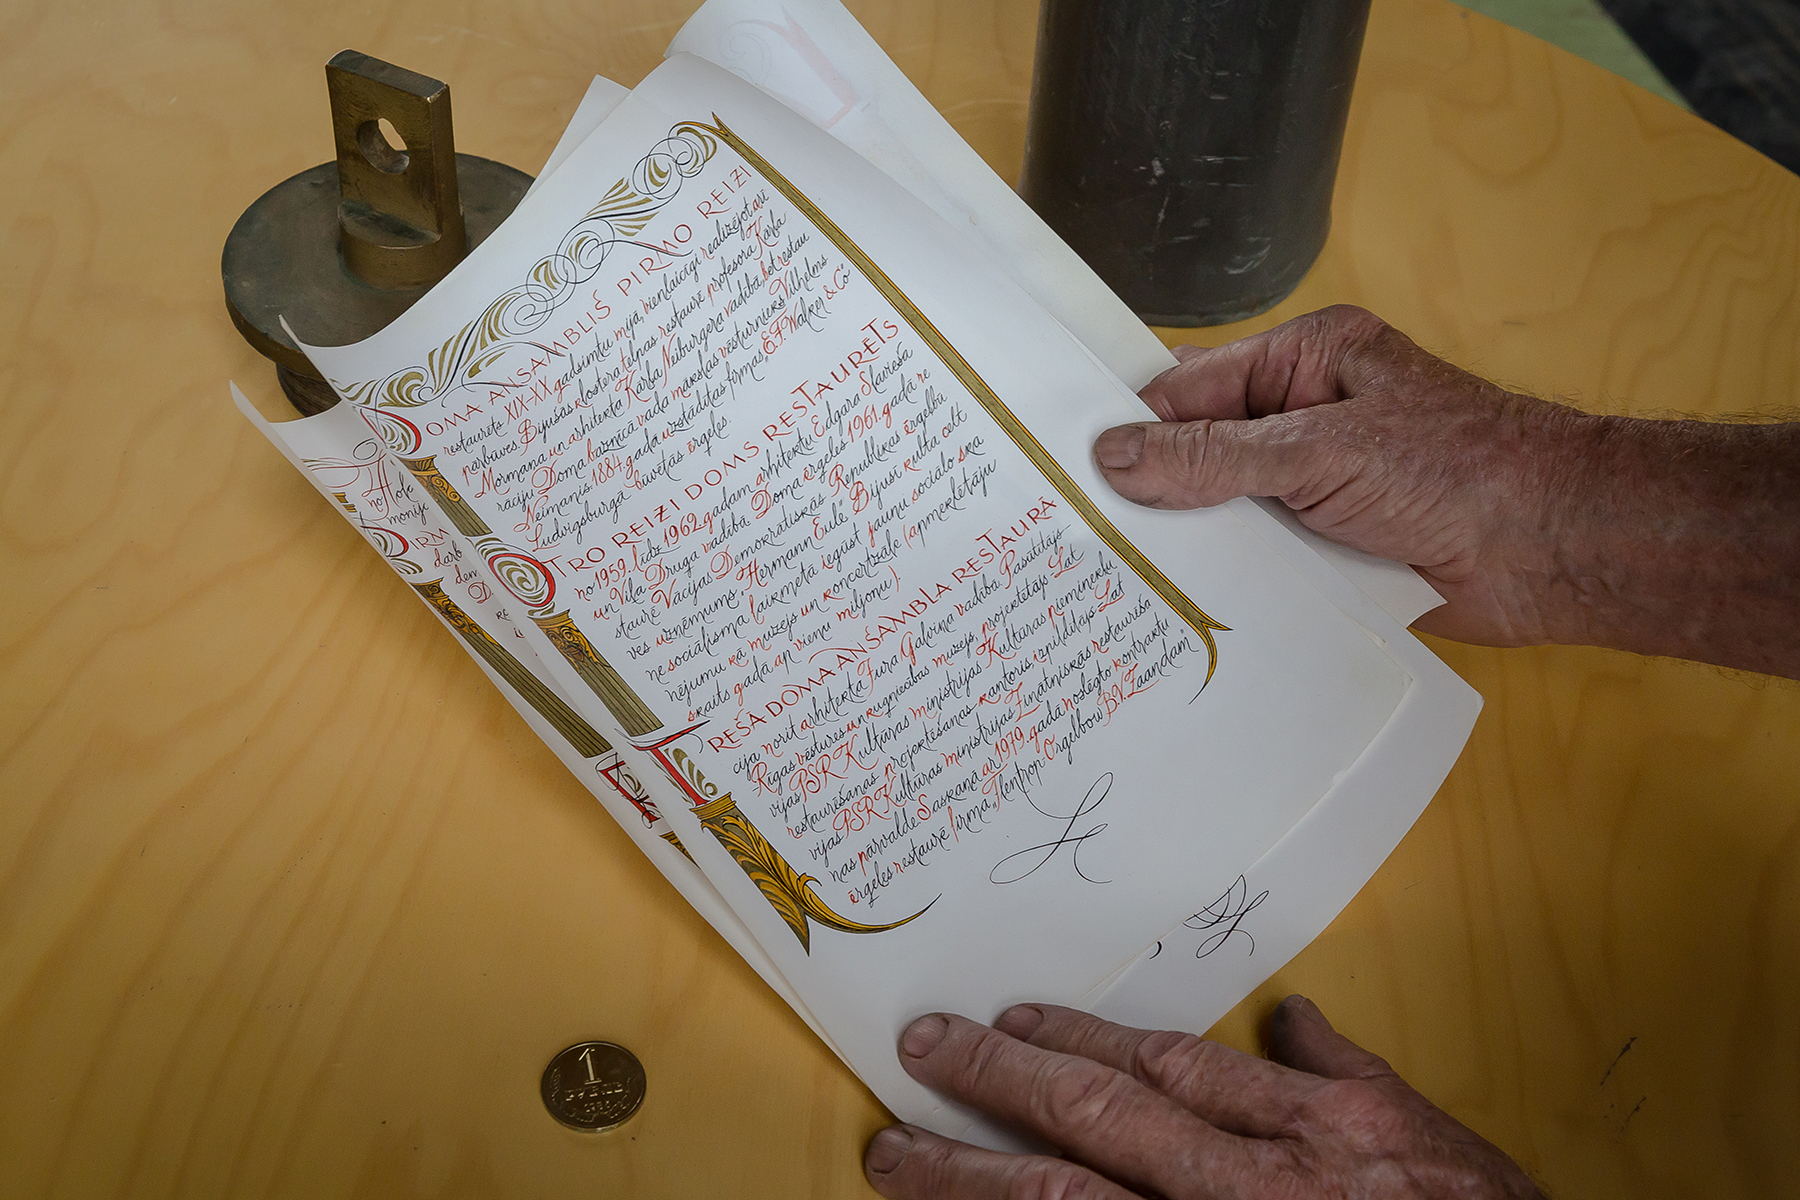 DOMA ANSAMBLIS PIRMO REIZI
restaurēts XIX-XX gadsimtu mijā, vienlaicīgi realizējot arī
pārbūves. Bijušās klostera telpas restaurē profesora Karļa
Mormaņa un arhitekta Karļa Neiburgera vadībā, bet restau
rāciju Doma baznīcā vada mākslas vēsturnieks Vilhelms
Neimanis. 1884. gadā uzstādītas firmas „E.F. Walker & Co"
Ludvigsburgā būvētās ērģeles.
OTRO REIZI DOMS RESTAURĒTS
no 1959. līdz 1962. gadam arhitektu Edgara Slavieša
un Viļa Druga vadībā. Doma ērģeles 1961. gadā re
staurē Vācijas Demokrātiskās Republikas ērģeļbū
ves uzņēmums „Hermann Eule". Bijusī kulta celt
ne sociālisma laikmetā iegūst jaunu sociālo ska
nējumu kā muzejs un koncertzāle (apmeklētāju
skaits gadā ap vienu miljonu).
TREŠĀ DOMA ANSAMBĻA RESTAURĀ
cija norit arhitekta Jura Galviņa vadībā. Pasūtītājs
Rīgas vēstures un kuģniecības muzejs, projektētājs Lat
vijas PSR Kultūras ministrijas Kultūras pieminekļu
restaurēšanas projektēšanas kantoris, izpildītājs Lat
vijas PSR Kultūras ministrijas Zinātniskās restaurēša
nas pārvalde. Saskaņā ar 1979. gadā noslēgto kontraktu
ērģeles restaurē firma „Flentrop Orgelbow B.V. Zaandam"
no
monije
PIRM
darb
den
D
1